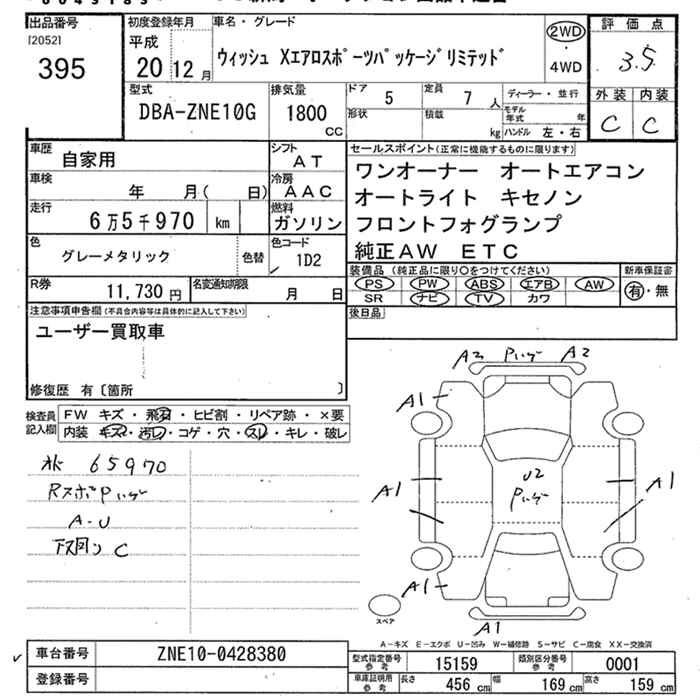 出品番号
[2052]
395
初度登録年月
平成
20 12 月
車名・グレード
ウィッシュ Xエアロスポーツパッケージリミテッド
2WD
・
4WD
評価点
3.5
外装 内装
C C
型式
DBA-ZNE10G
排気量
1800
CC
ドア
5
定員
7 人
形状
積載
kg
ディーラー・並行
モデル年式 年
ハンドル 左・右
車歴
自家用
シフト
AT
車検
年 月( 日)
冷房
AAC
走行
6万5千970 km
燃料
ガソリン
色
グレーメタリック
色替
色コード
1D2
R券
11,730 円
名変通知期限
月 日
セールスポイント(正常に機能するものに限ります)
ワンオーナー オートエアコン
オートライト キセノン
フロントフォグランプ
純正AW ETC
装備品(純正品に限り○をつけてください)
PS PW ABS エアB AW
SR ナビ TV カワ
新車保証書
有・無
後日品
注意事項申告欄(不具合内容等は具体的に記入して下さい)
ユーザー買取車
修復歴 有〔箇所 〕
検査員記入欄
FW キズ・飛石・ヒビ割・リペア跡・×要
内装 キズ・汚レ・コゲ・穴・スレ・キレ・破レ
65970
RスポPハゲ
A-U
下回り C
A2 Pハゲ A2
A1
A1
U2
Pハゲ
A1
A1
A1
スペア
A-キズ E-エクボ U-凹み W-補修跡 S-サビ C-腐食 XX-交換済
車台番号
ZNE10-0428380
登録番号
型式指定番号
参考
15159
類別区分番号
参考
0001
車庫証明用
参考
長さ 456 cm 幅 169 cm 高さ 159 cm